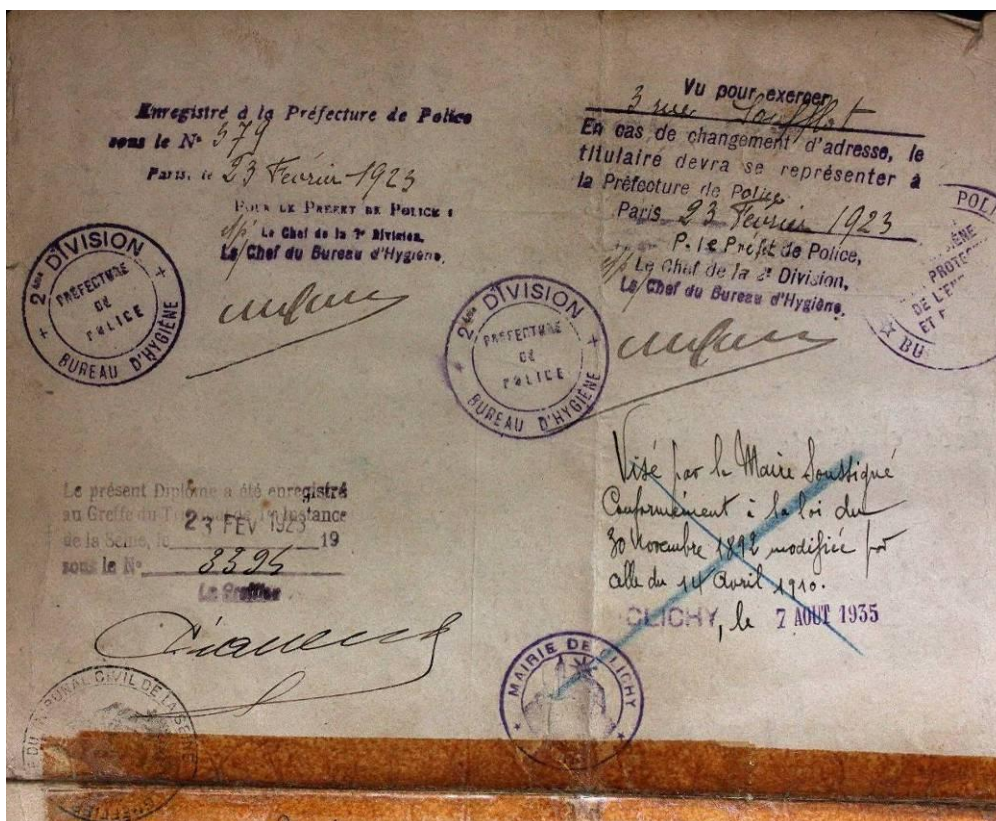 Enregistré à la Préfecture de Police
sous le N° 579
Paris, le 23 Février 1923
POUR LE PREFET DE POLICE :
Le Chef de la 2e Division,
Le Chef du Bureau d'Hygiène,
2ème DIVISION
PREFECTURE
DE
POLICE
BUREAU D'HYGIÈNE
Vu pour exercer
3 rue Soufflot
En cas de changement d'adresse, le
titulaire devra se représenter à
la Préfecture de Police
Paris, 23 Février 1923
P. le Préfet de Police,
Le Chef de la 2e Division,
Le Chef du Bureau d'Hygiène,
2ème DIVISION
PREFECTURE
DE
POLICE
BUREAU D'HYGIÈNE
Le présent Diplôme a été enregistré
au Greffe du Tribunal de 1re Instance
de la Seine, le 23 FEV 1923 19
sous le N°
Le Greffier
TRIBUNAL CIVIL DE LA SEINE
Visé par le Maire Soussigné
Conformément à la loi du
30 Novembre 1892 modifiée par
celle du 14 Avril 1910.
CLICHY, le 7 AOUT 1935
MAIRIE DE CLICHY